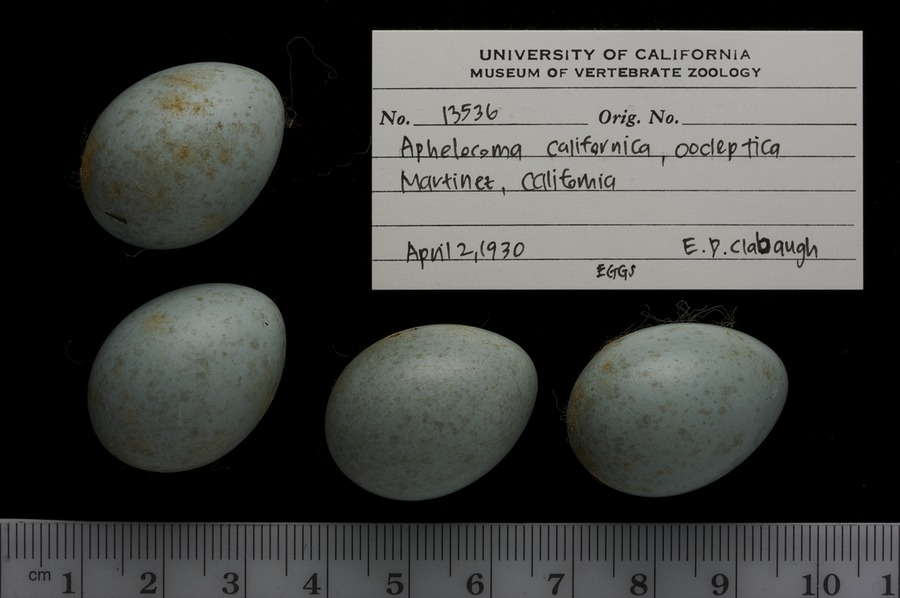 UNIVERSITY OF CALIFORNIA
MUSEUM OF VERTEBRATE ZOOLOGY
No. 13536 Orig. No.
Aphelocoma californica, oocleptica
Martinez, California
April 2, 1930 E.D. Clabaugh
EGGS
cm 1 2 3 4 5 6 7 8 9 10 1